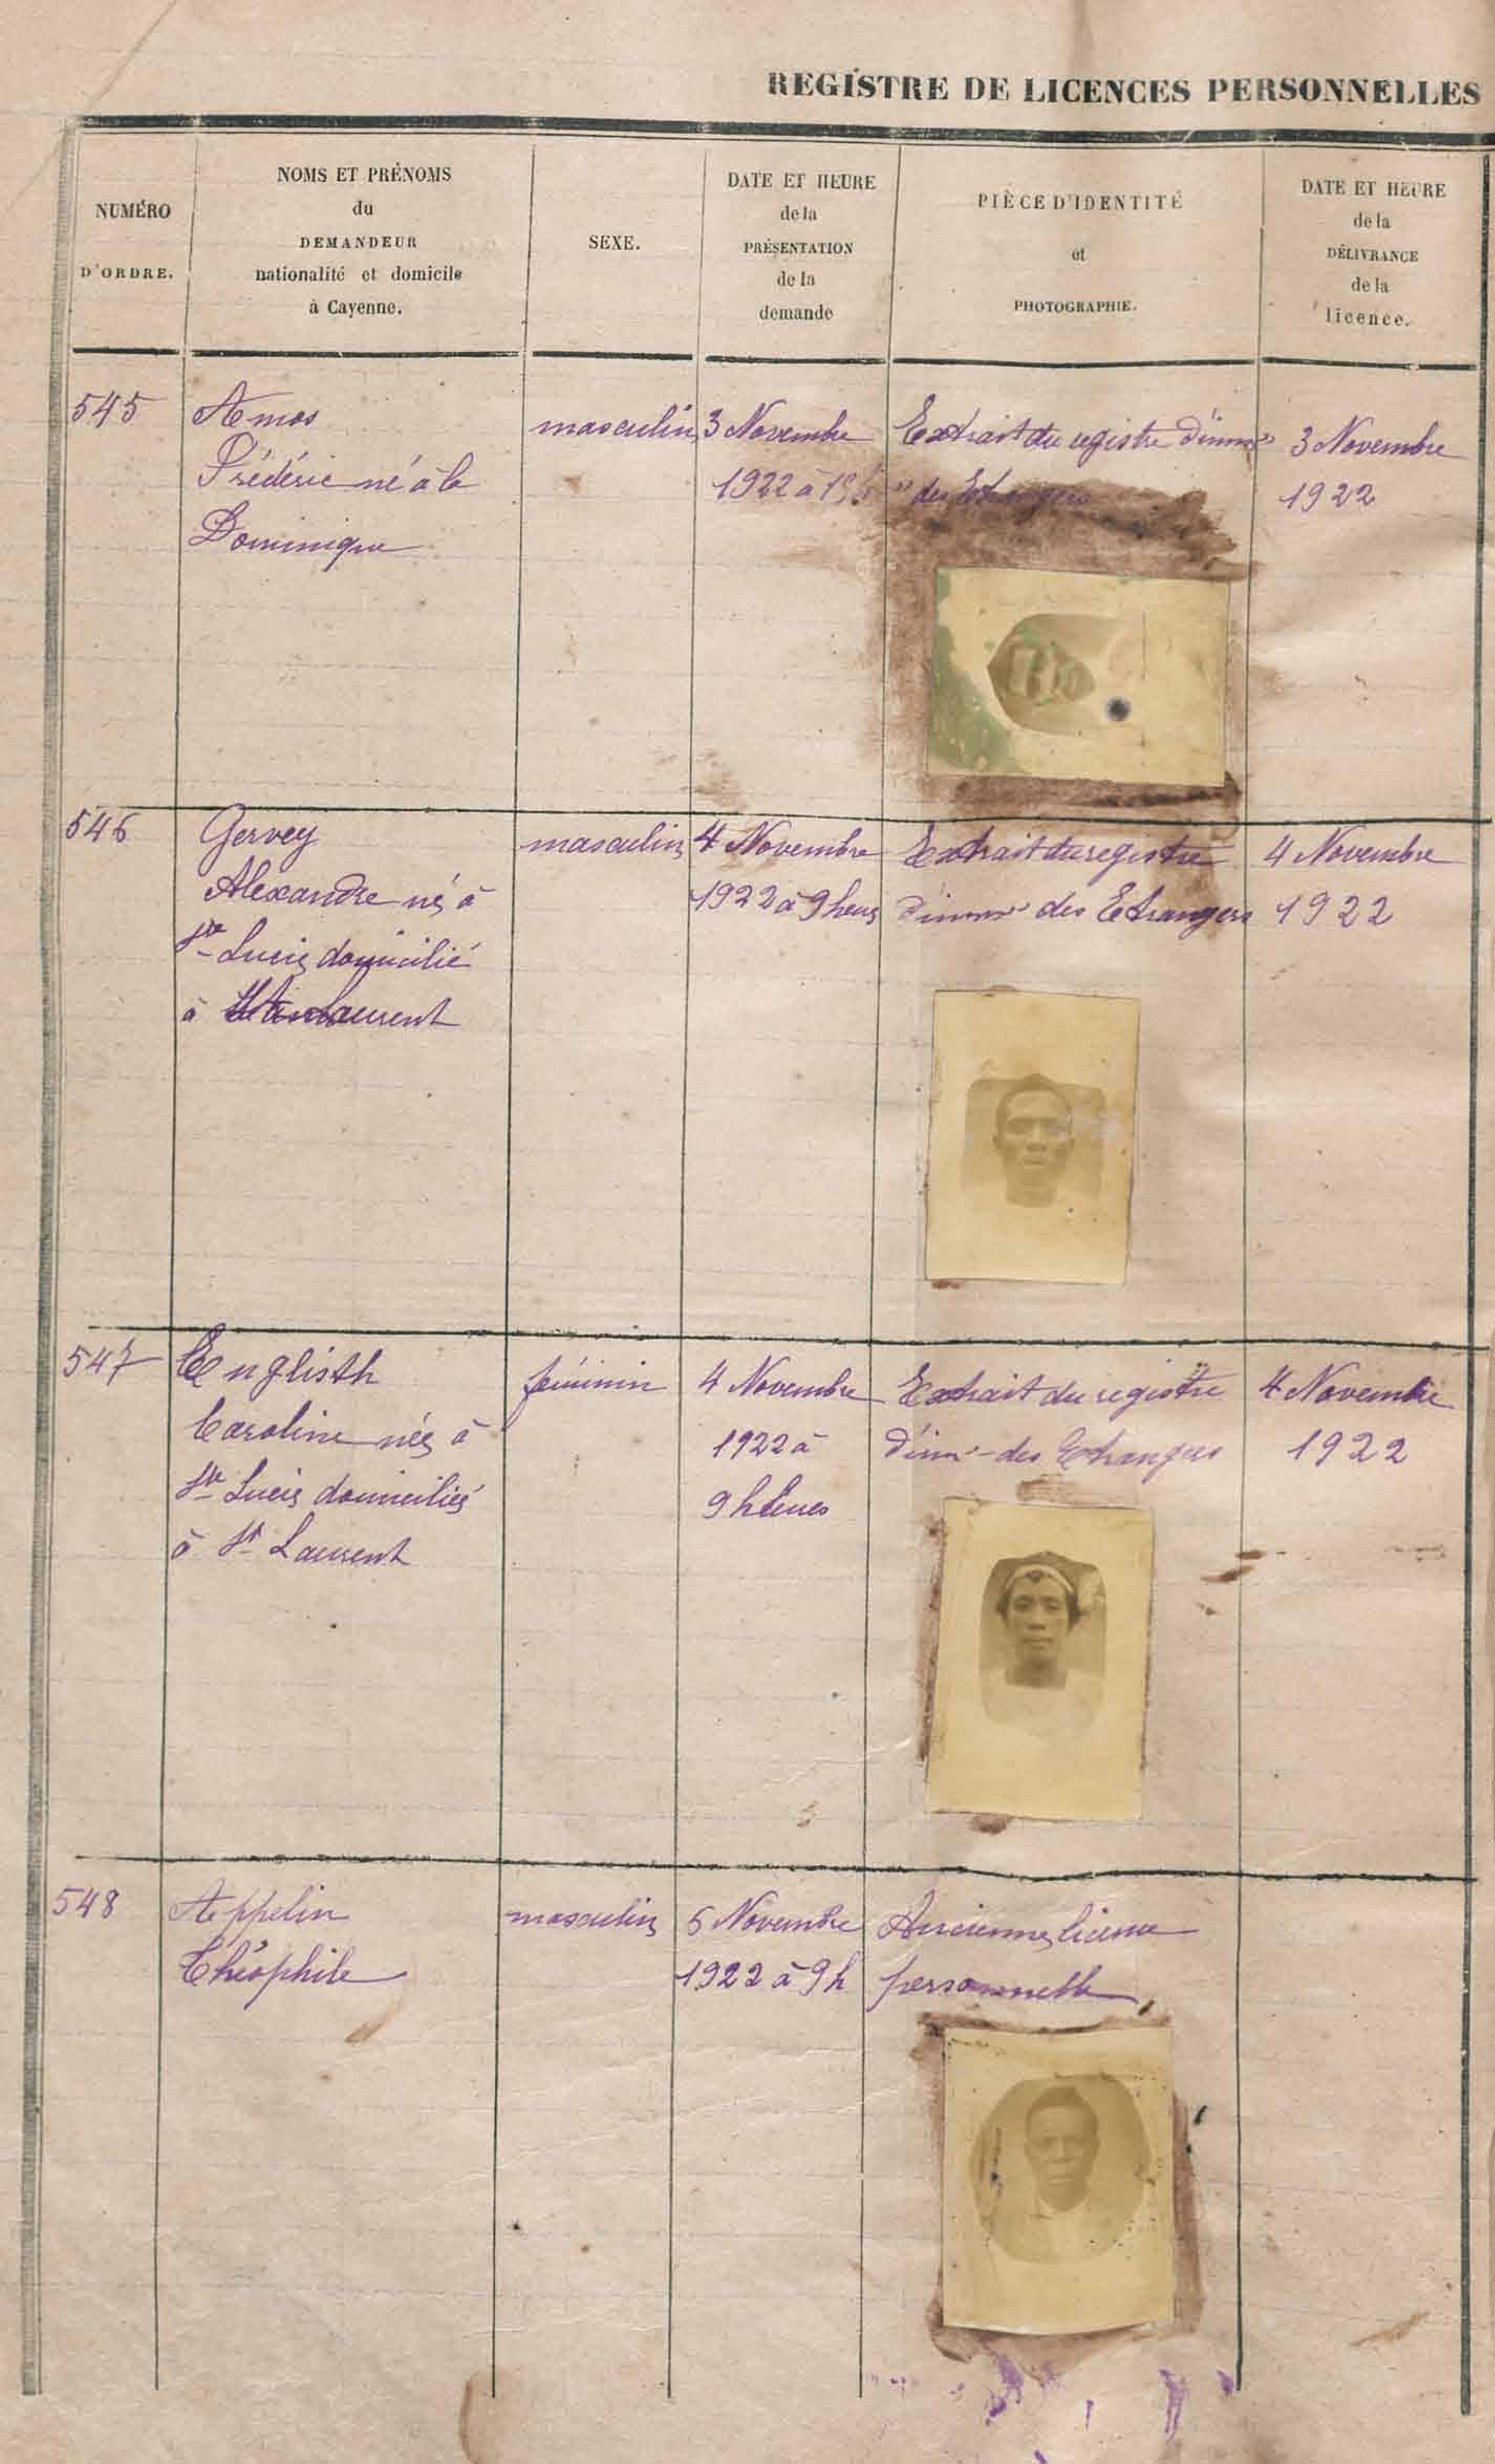 REGISTRE DE LICENCES PERSONNELLES
NUMÉRO
D'ORDRE.
NOMS ET PRÉNOMS
du
DEMANDEUR
nationalité et domicile
à Cayenne.
SEXE.
DATE ET HEURE
de la
PRÉSENTATION
de la
demande
PIÈCE D'IDENTITÉ
et
PHOTOGRAPHIE.
DATE ET HEURE
de la
DÉLIVRANCE
de la
licence.
545
Amos
Frédéric né à la
Dominique
masculin
3 Novembre
1922 à
Extrait du registre d'imm
des Etrangers
3 Novembre
1922
546
Gervey
Alexandre né à
Ste Lucie domicilié
à Laurent
masculin
4 Novembre
1922 à 9 heures
Extrait du registre
d'imm des Etrangers
4 Novembre
1922
547
Englisth
Caroline née à
Ste Lucie domiciliée
à St Laurent
féminin
4 Novembre
1922 à
9 heures
Extrait du registre
d'imm des Etrangers
4 Novembre
1922
548
Appelin
Théophile
masculin
5 Novembre
1922 à 9 h
Ancienne licence
personnelle